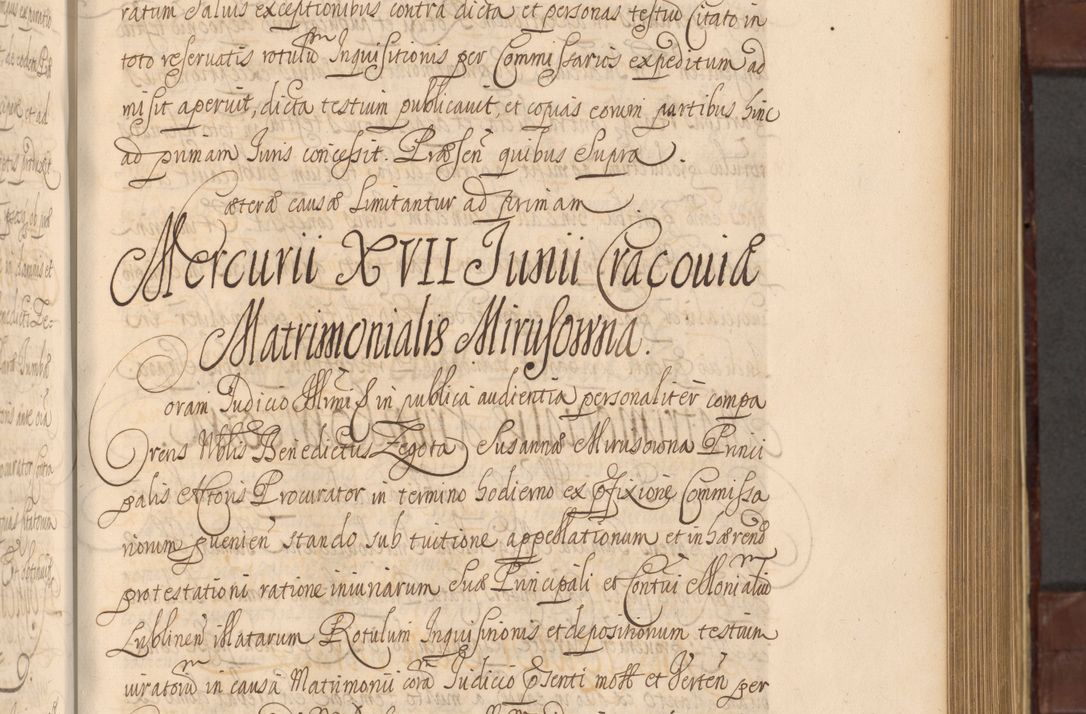 ratum Salvis exceptionibus contra dicta et personas testiu Citato in
toto reservatis rotulu Inquisitionis per Commissarios expeditum ad
misit aperuit, dicta testium publicauit, et copias eorum partibus hinc
ad primam Iuris concessit. Præsen quibus Supra.
Cæteræ causæ Limitantur ad primam
Mercurii XVII Junii Cracouiæ
Matrimonialis Mirusowna.
Coram Judicio in publica audientia personaliter compa
rens Nblis Benedictus Zegota Susannæ Mirusowna Princi
palis Actoris Procurator in termino hodierno ex pfixione Commissa
riorum puenien stando sub tuitione appellationum et inhærendo
protestationi ratione iniuriarum Suæ Principali et Contui Monialiu
Lublinen illatarum Rotulum Inquisitionis et depositionum testium
iuratoru in causa Matrimonii cora Judicio psenti mott et Verten per